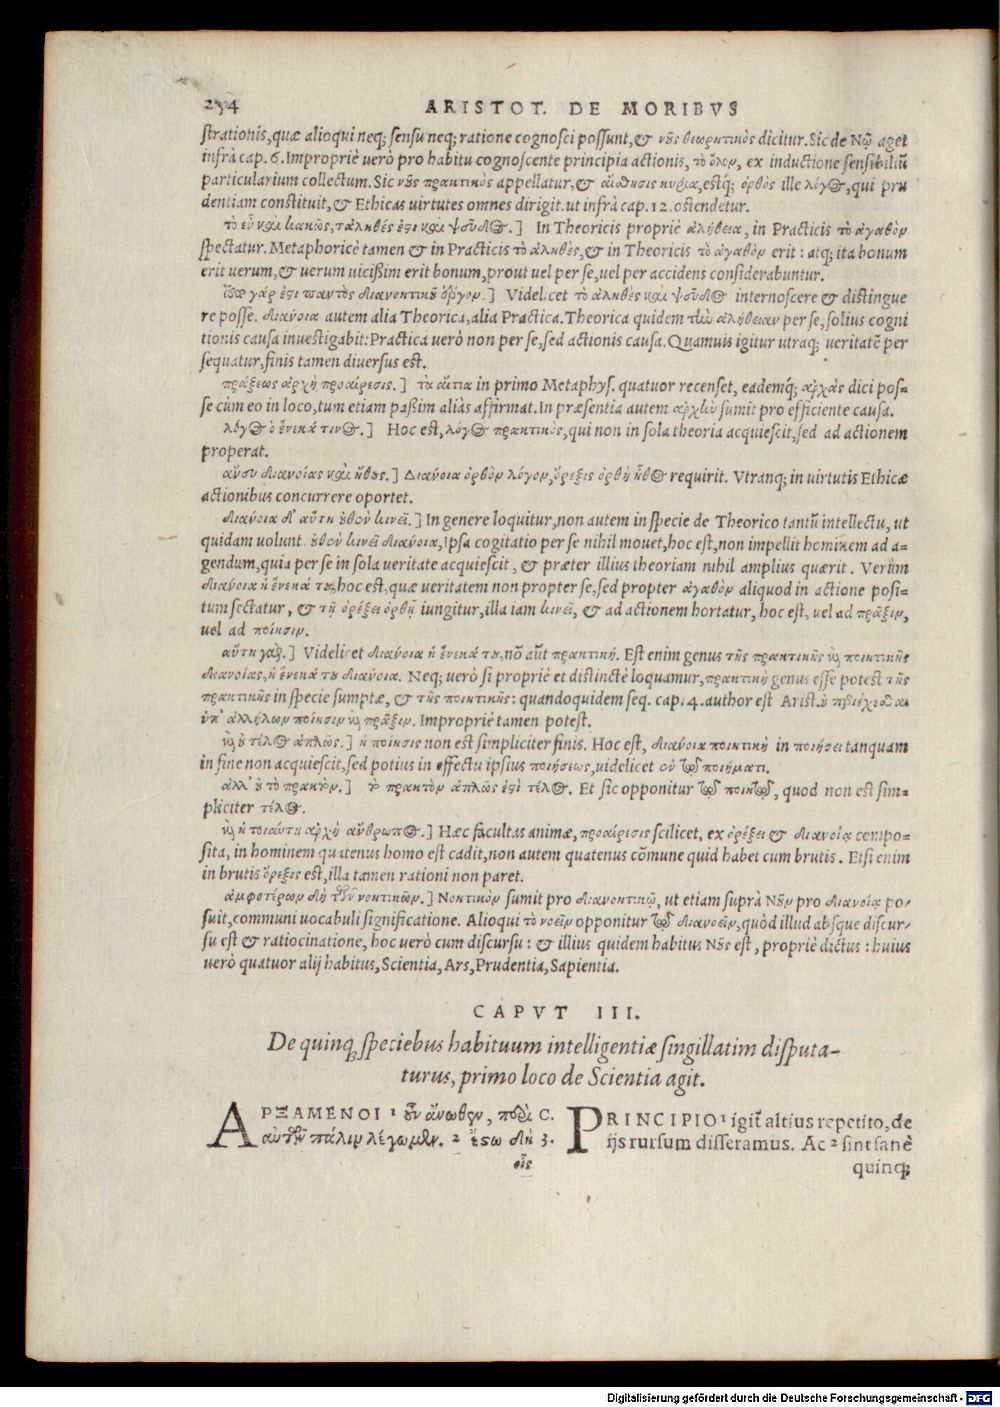 254 ARISTOT. DE MORIBVS
strationis, quæ alioqui neq; sensu neq; ratione cognosci possunt, & νῦς θεωρητικὸς dicitur. Sic de Νῷ aget
infrà cap. 6. Impropriè uerò pro habitu cognoscente principia actionis, τὸ ὅλον, ex inductione sensibiliũ
particularium collectum. Sic νῦς πρακτικὸς appellatur, & αἴσθησις κυρία, estq; ὀρθὸς ille λόγος, qui pru
dentiam constituit, & Ethicas uirtutes omnes dirigit. ut infrà cap. 12. ostendetur.
τὸ εὖ καὶ κακῶς, τἀληθές ἐστι καὶ ψεῦδος.] In Theoricis propriè ἀλήθεια, in Practicis τὸ ἀγαθὸν
spectatur. Metaphoricè tamen & in Practicis τὸ ἀληθὲς, & in Theoricis τὸ ἀγαθὸν erit: atq; ita bonum
erit uerum, & uerum uicißim erit bonum, prout uel per se, uel per accidens considerabuntur.
γάρ ἐστι παντὸς διανοητικοῦ ἔργον.] Videlicet τὸ ἀληθὲς καὶ ψεῦδος internoscere & distingue
re posse. διάνοια autem alia Theorica, alia Practica. Theorica quidem τὴν ἀλήθειαν per se, solius cogni
tionis causa inuestigabit: Practica uerò non per se, sed actionis causa. Quamuis igitur utraq; ueritatẽ per
sequatur, finis tamen diuersus est.
πράξεως ἀρχὴ προαίρεσις.] τὰ αἴτια in primo Metaphys. quatuor recenset, eademq́; ἀρχὰς dici pos-
se cùm eo in loco, tum etiam paßim aliàs affirmat. In præsentia autem ἀρχὴν sumit pro efficiente causa.
λόγος ὁ ἕνεκά τινος.] Hoc est, λόγος πρακτικὸς, qui non in sola theoria acquiescit, sed ad actionem
properat.
ἄνευ διανοίας καὶ ἤθους.] Διάνοια ὀρθὸν λόγον, ὄρεξις ὀρθὴ ἦθος requirit. Vtranq; in uirtutis Ethicæ
actionibus concurrere oportet.
διάνοια δ' αὕτη οὐθὲν κινεῖ.] In genere loquitur, non autem in specie de Theorico tantũ intellectu, ut
quidam uolunt. οὐθὲν κινεῖ διάνοια, Ipsa cogitatio per se nihil mouet, hoc est, non impellit hominem ad a-
gendum, quia per se in sola ueritate acquiescit, & præter illius theoriam nihil amplius quærit. Verùm
διάνοια ἡ ἕνεκά του, hoc est, quæ ueritatem non propter se, sed propter ἀγαθὸν aliquod in actione posi-
tum sectatur, & τῇ ὀρέξει ὀρθῇ iungitur, illa iam κινεῖ, & ad actionem hortatur, hoc est, uel ad πρᾶξιν,
uel ad ποίησιν.
αὕτη γὰρ.] Videlicet διάνοια ἡ ἕνεκά του, nõ aũt πρακτική. Est enim genus τῆς πρακτικῆς καὶ ποιητικῆς
διανοίας, ἡ ἕνεκά του διάνοια. Neq; uerò si propriè et distinctè loquamur, πρακτικὴ genus esse potest τῆς
πρακτικῆς in specie sumptæ, & τῆς ποιητικῆς: quandoquidem seq. cap. 4. author est Arist. οὐ περιέχεσθαι
ὑπ' ἀλλήλων ποίησιν καὶ πρᾶξιν. Impropriè tamen potest.
καὶ οὐ τέλος ἁπλῶς.] ἡ ποίησις non est simpliciter finis. Hoc est, διάνοια ποιητικὴ in ποιήσει tanquam
in fine non acquiescit, sed potius in effectu ipsius ποιήσεως, uidelicet ἐν τῷ ποιήματι.
ἀλλ' οὐ τὸ πρακτὸν.] τὸ πρακτὸν ἁπλῶς ἐστὶ τέλος. Et sic opponitur τῷ ποιητῷ, quod non est sim-
pliciter τέλος.
καὶ ἡ τοιαύτη ἀρχὴ ἄνθρωπος.] Hæc facultas animæ, προαίρεσις scilicet, ex ὀρέξει & διανοίᾳ compo-
sita, in hominem quatenus homo est cadit, non autem quatenus cõmune quid habet cum brutis. Etsi enim
in brutis ὄρεξις est, illa tamen rationi non paret.
ἀμφοτέρων δὴ τῶν νοητικῶν.] Νοητικὸν sumit pro διανοητικῷ, ut etiam suprà Νοῦν pro διανοίᾳ po-
suit, communi uocabuli significatione. Alioqui τὸ νοεῖν opponitur τῷ διανοεῖν, quòd illud absque discur-
su est & ratiocinatione, hoc uerò cum discursu: & illius quidem habitus Νῦς est, propriè dictus: huius
uerò quatuor alij habitus, Scientia, Ars, Prudentia, Sapientia.
CAPVT III.
De quinq; speciebus habituum intelligentiæ singillatim disputa-
turus, primo loco de Scientia agit.
ΑΡΞΑΜΕΝΟΙ ¹ οὖν ἄνωθεν, περὶ C.
αὐτῶν πάλιν λέγωμεν. ² ἔστω δὴ 3.
οἷς
PRINCIPIO ¹ igit̃ altius repetito, de
ijs rursum disseramus. Ac ² sint sanè
quinq;
Digitalisierung gefördert durch die Deutsche Forschungsgemeinschaft - DFG